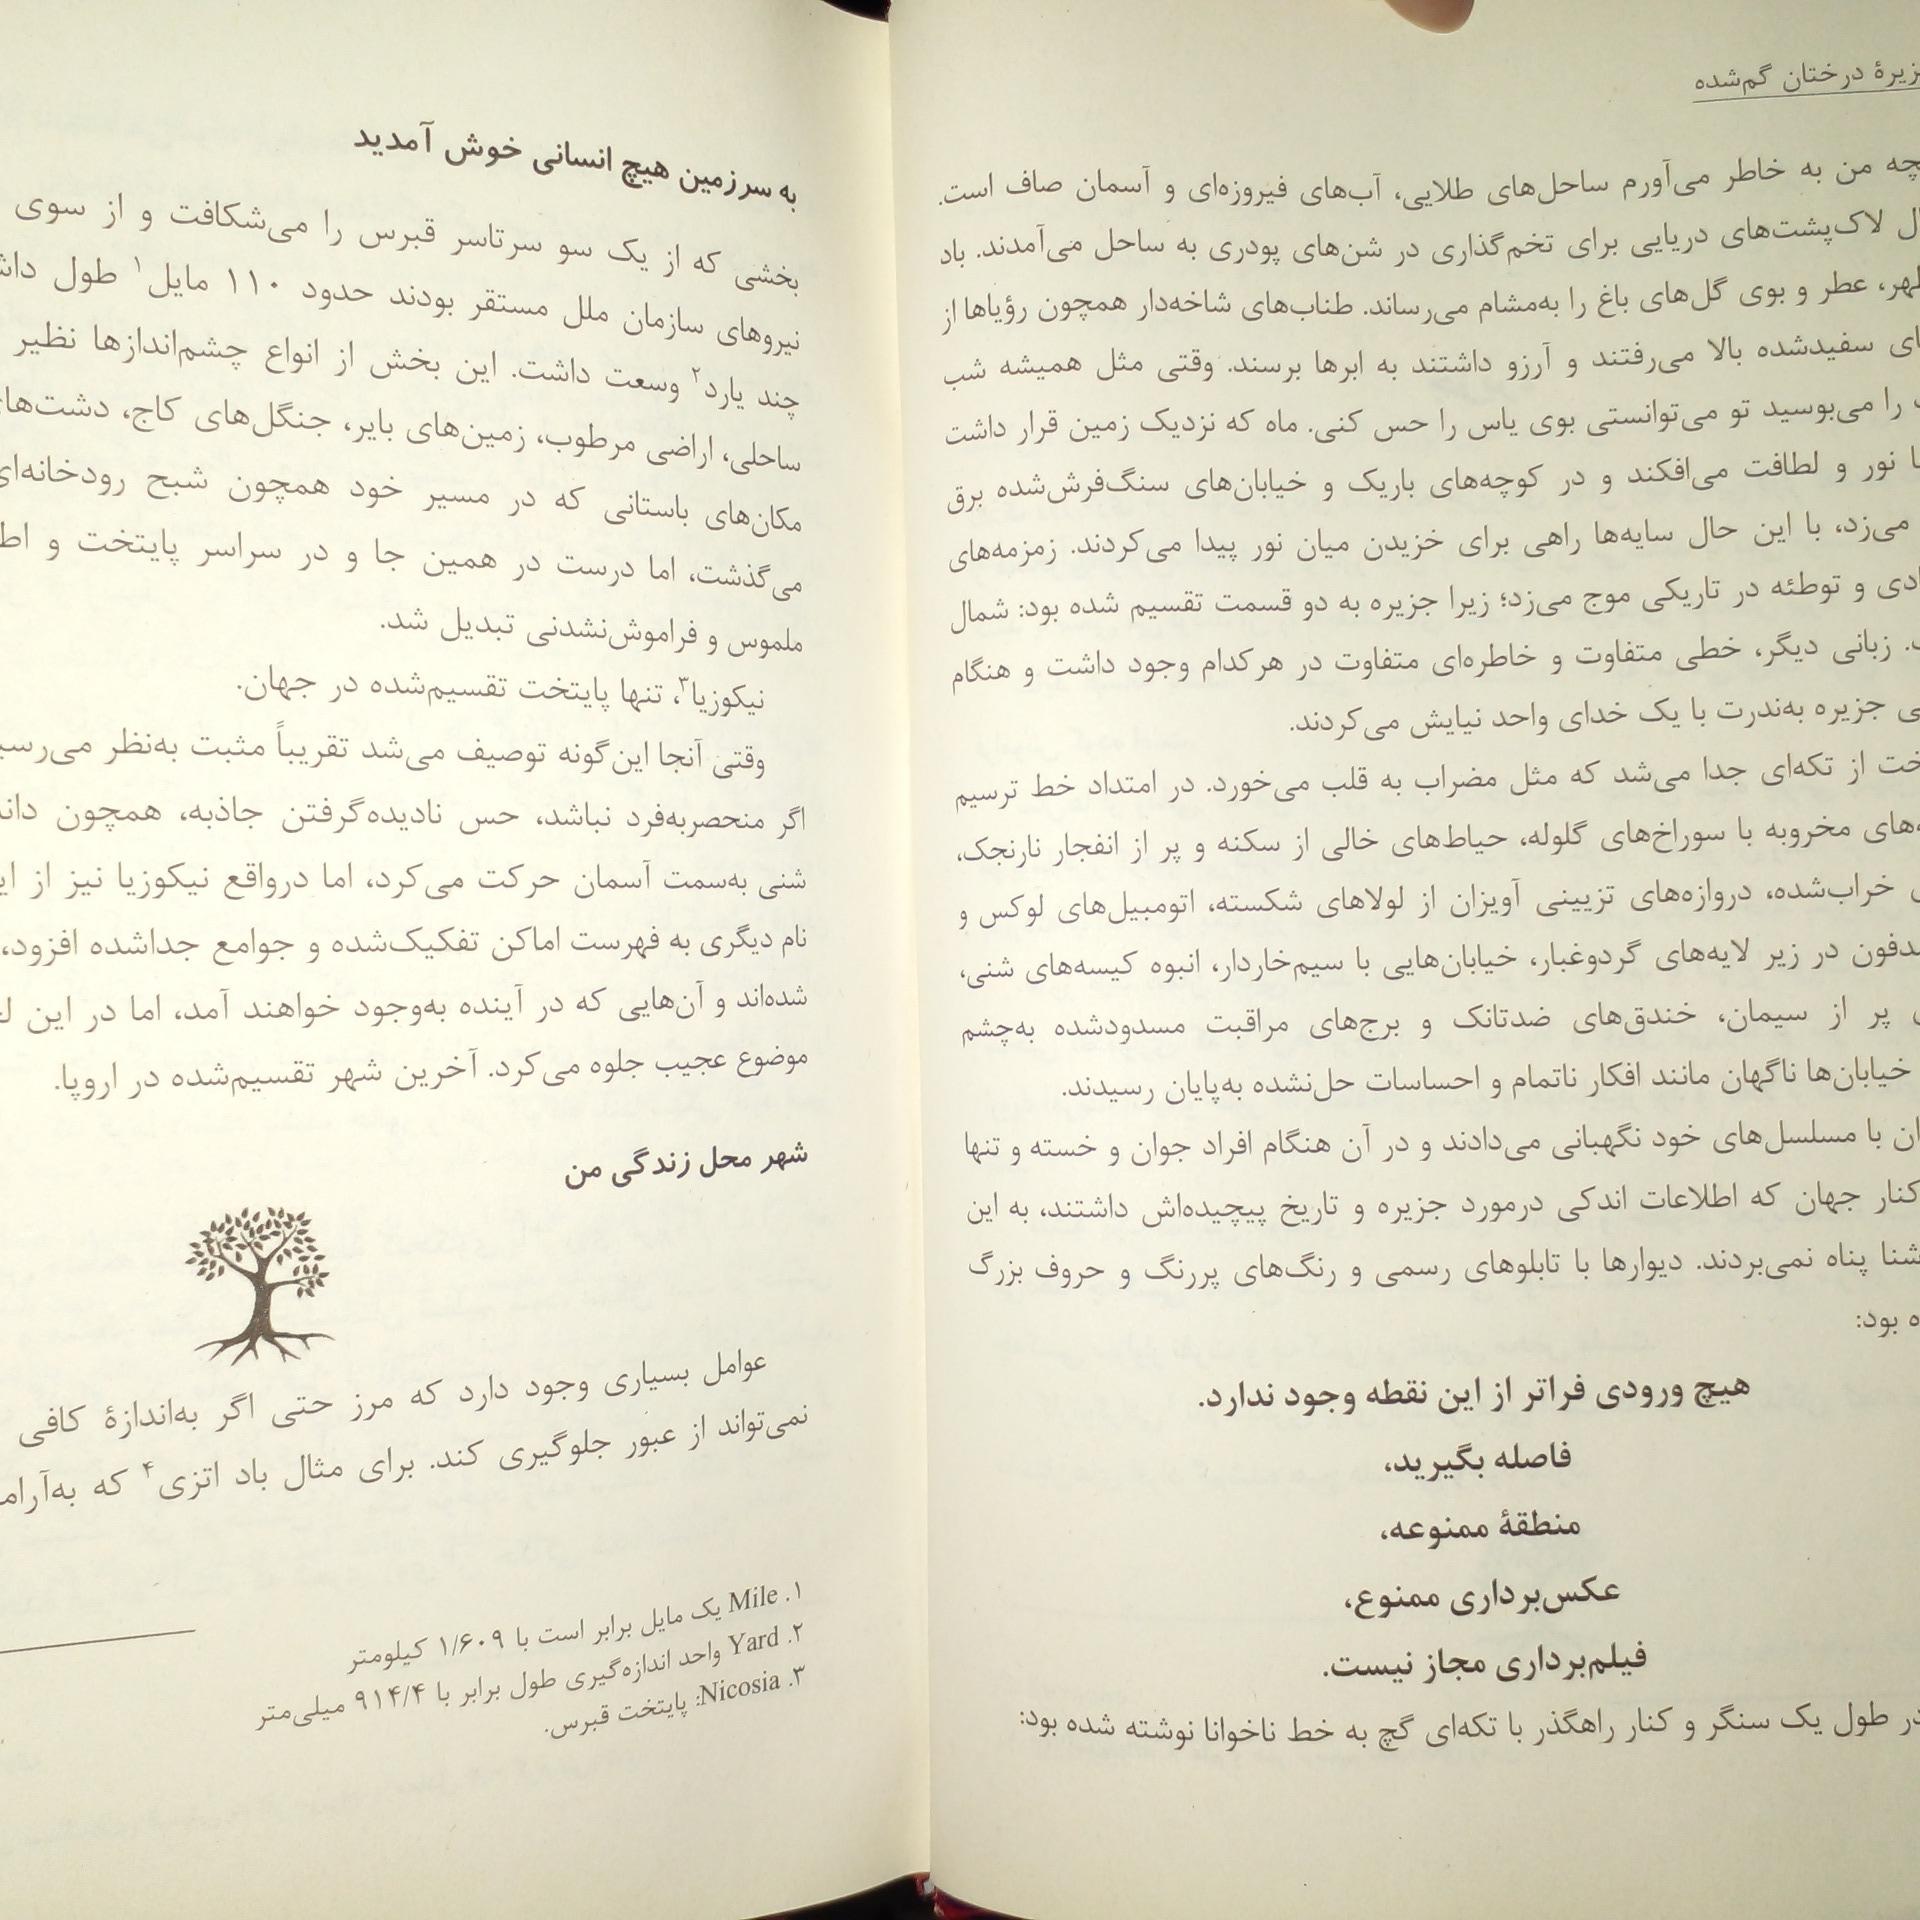 درختان گم‌شده
من به خاطر می‌آورم ساحل‌های طلایی، آب‌های فیروزه‌ای و آسمان صاف است.
لاک‌پشت‌های دریایی برای تخم‌گذاری در شن‌های پودری به ساحل می‌آمدند. باد
عطر و بوی گل‌های باغ را به‌مشام می‌رساند. طناب‌های شاخه‌دار همچون رؤیاها از
سفیدشده بالا می‌رفتند و آرزو داشتند به ابرها برسند. وقتی مثل همیشه شب
را می‌بوسید تو می‌توانستی بوی یاس را حس کنی. ماه که نزدیک زمین قرار داشت
نور و لطافت می‌افکند و در کوچه‌های باریک و خیابان‌های سنگ‌فرش‌شده برق
می‌زد، با این حال سایه‌ها راهی برای خزیدن میان نور پیدا می‌کردند. زمزمه‌های
و توطئه در تاریکی موج می‌زد؛ زیرا جزیره به دو قسمت تقسیم شده بود: شمال
زبانی دیگر، خطی متفاوت و خاطره‌ای متفاوت در هرکدام وجود داشت و هنگام
جزیره به‌ندرت با یک خدای واحد نیایش می‌کردند.
از تکه‌ای جدا می‌شد که مثل مضراب به قلب می‌خورد. در امتداد خط ترسیم
مخروبه با سوراخ‌های گلوله، حیاط‌های خالی از سکنه و پر از انفجار نارنجک،
خراب‌شده، دروازه‌های تزیینی آویزان از لولاهای شکسته، اتومبیل‌های لوکس و
در زیر لایه‌های گردوغبار، خیابان‌هایی با سیم‌خاردار، انبوه کیسه‌های شنی،
پر از سیمان، خندق‌های ضدتانک و برج‌های مراقبت مسدودشده به‌چشم
خیابان‌ها ناگهان مانند افکار ناتمام و احساسات حل‌نشده به‌پایان رسیدند.
با مسلسل‌های خود نگهبانی می‌دادند و در آن هنگام افراد جوان و خسته و تنها
کنار جهان که اطلاعات اندکی درمورد جزیره و تاریخ پیچیده‌اش داشتند، به این
پناه نمی‌بردند. دیوارها با تابلوهای رسمی و رنگ‌های پررنگ و حروف بزرگ
بود:
هیچ ورودی فراتر از این نقطه وجود ندارد.
فاصله بگیرید،
منطقهٔ ممنوعه،
عکس‌برداری ممنوع،
فیلم‌برداری مجاز نیست.
در طول یک سنگر و کنار راهگذر با تکه‌ای گچ به خط ناخوانا نوشته شده بود:
به سرزمین هیچ انسانی خوش آمدید
بخشی که از یک سو سرتاسر قبرس را می‌شکافت و از سوی
نیروهای سازمان ملل مستقر بودند حدود ۱۱۰ مایل۱ طول
چند یارد۲ وسعت داشت. این بخش از انواع چشم‌اندازها نظیر
ساحلی، اراضی مرطوب، زمین‌های بایر، جنگل‌های کاج،
مکان‌های باستانی که در مسیر خود همچون شبح
می‌گذشت، اما درست در همین جا و در سراسر پایتخت و
ملموس و فراموش‌نشدنی تبدیل شد.
نیکوزیا۳، تنها پایتخت تقسیم‌شده در جهان.
وقتی آنجا این‌گونه توصیف می‌شد تقریباً مثبت به‌نظر
اگر منحصربه‌فرد نباشد، حس نادیده‌گرفتن جاذبه، همچون
شنی به‌سمت آسمان حرکت می‌کرد، اما درواقع نیکوزیا نیز از
نام دیگری به فهرست اماکن تفکیک‌شده و جوامع جداشده افزود،
شده‌اند و آن‌هایی که در آینده به‌وجود خواهند آمد، اما در این
موضوع عجیب جلوه می‌کرد. آخرین شهر تقسیم‌شده در اروپا.
شهر محل زندگی من
عوامل بسیاری وجود دارد که مرز حتی اگر به‌اندازهٔ کافی
نمی‌تواند از عبور جلوگیری کند. برای مثال باد اتزی۴ که
۱. Mile یک مایل برابر است با ۱/۶۰۹ کیلومتر
۲. Yard واحد اندازه‌گیری طول برابر با ۹۱۴/۴ میلی‌متر
۳. Nicosia: پایتخت قبرس.